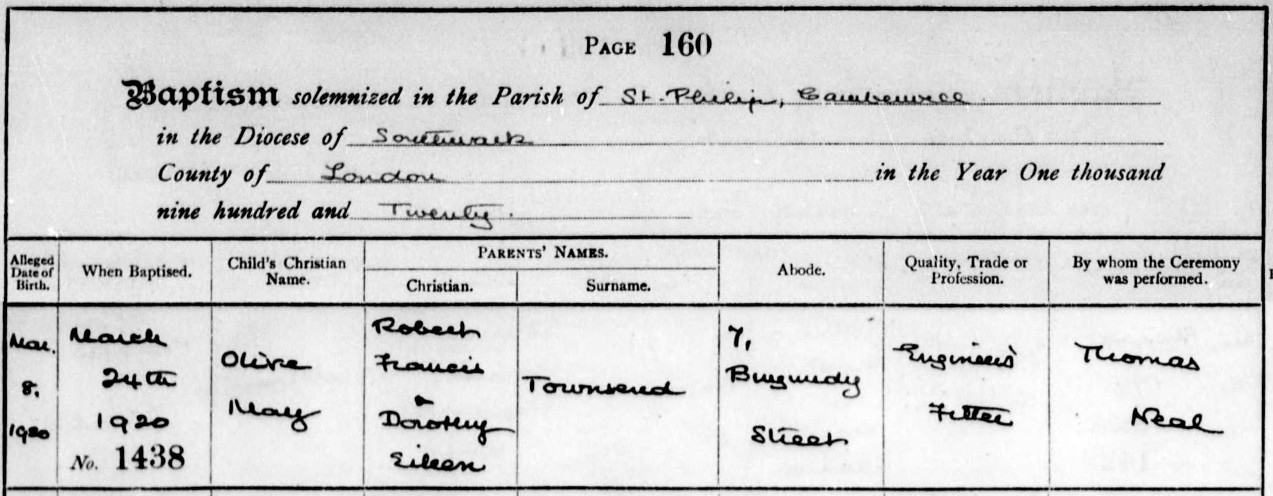 PAGE 160
Baptism solemnized in the Parish of St. Philip, Camberwell.
in the Diocese of Southwark
County of London in the Year One thousand
nine hundred and Twenty.
Alleged Date of Birth.
When Baptised.
Child's Christian Name.
PARENTS' NAMES.
Christian.
Surname.
Abode.
Quality, Trade or Profession.
By whom the Ceremony was performed.
Mar.
8,
1920
March
24th
1920
No. 1438
Olive
May
Robert
Francis
&
Dorothy
Eileen
Townsend
7,
Burgundy
Street
Engineer's
Fitter
Thomas
Neal